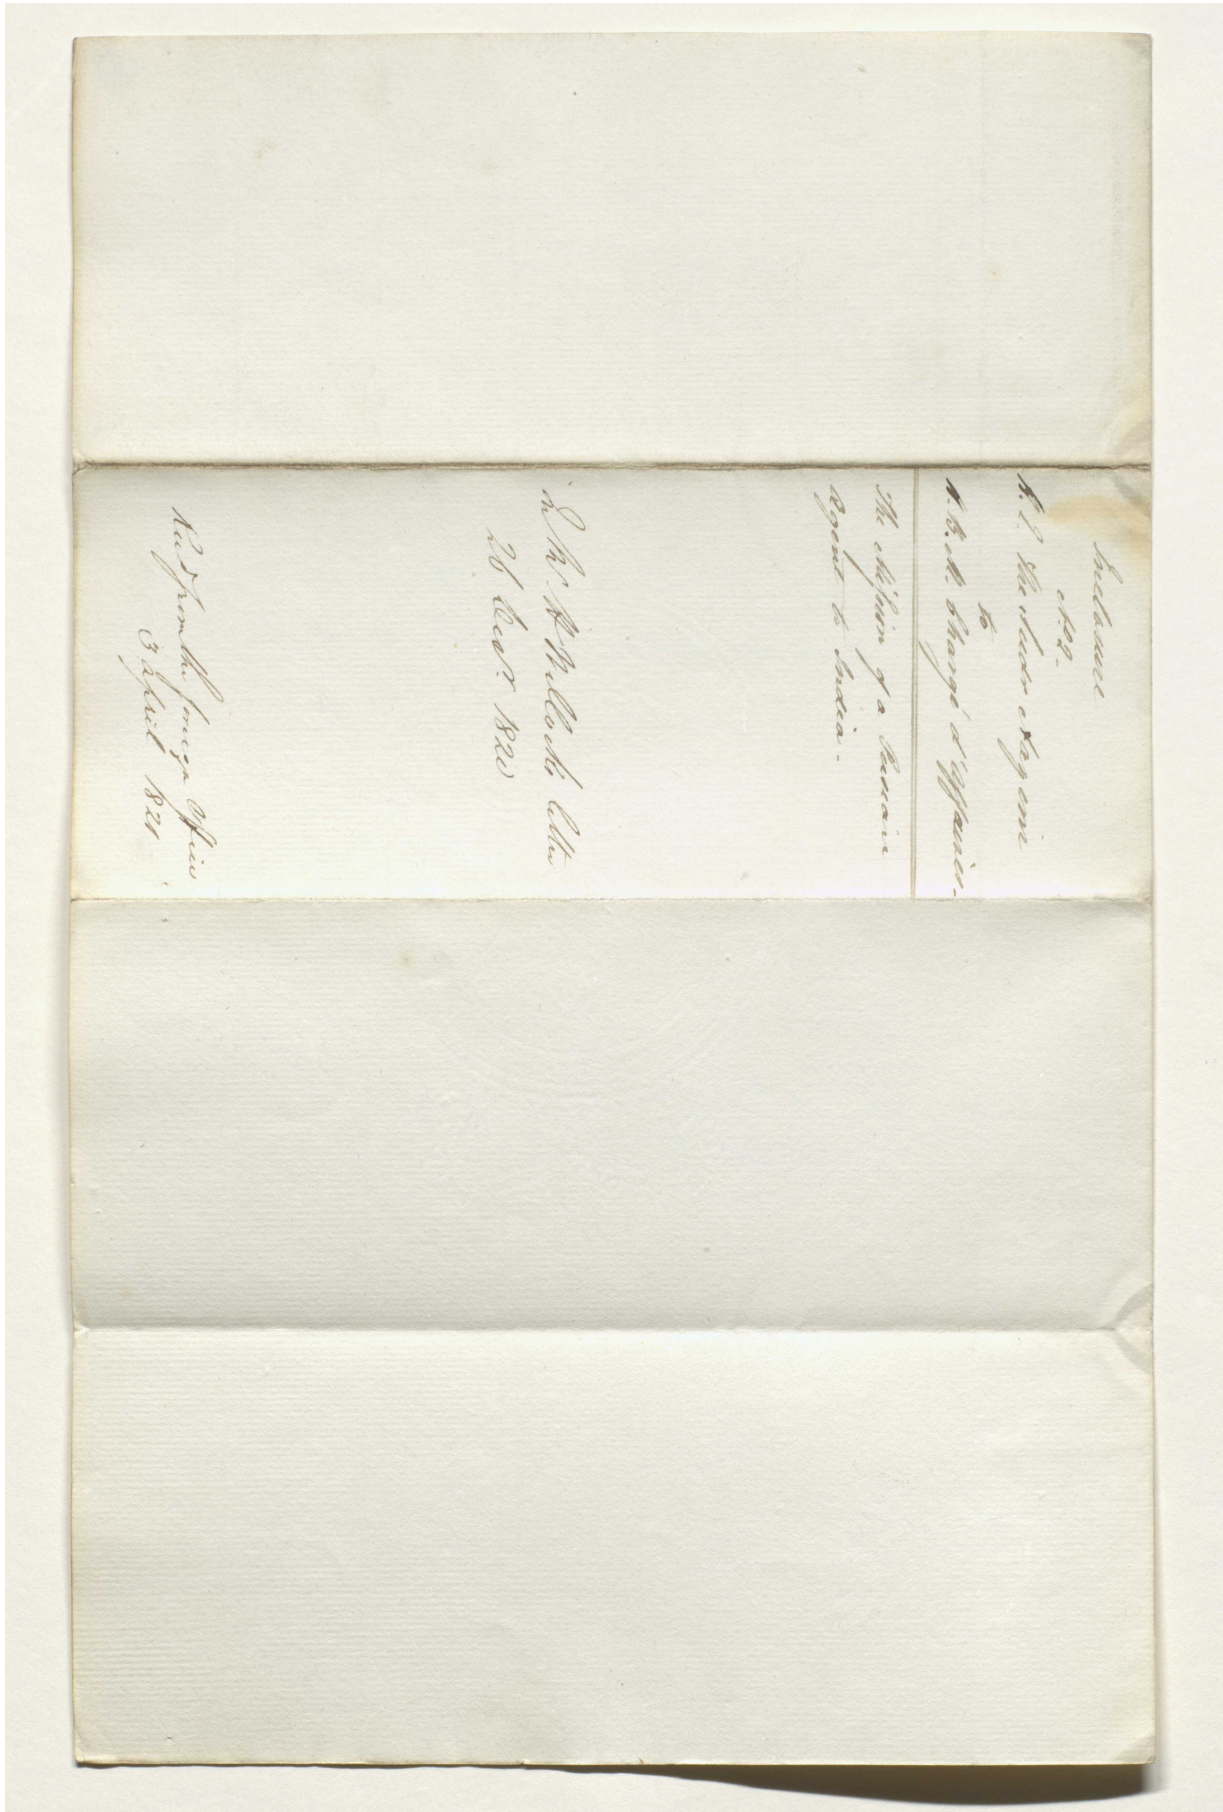 Enclosure
No. 2-
H. E. The Ameer Nizam
to
H. B. M. Chargé d'Affaires-
The Mission of a Russian
Agent to India-
in Mr. H Willock's letter
26 Decr. 1820
Recd from the foreign Office
3 April 1821